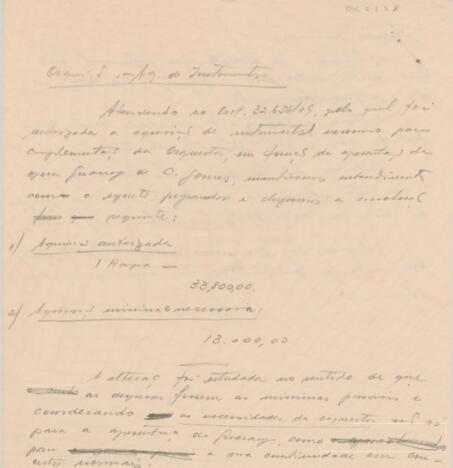 Orques. S. - Aq. de Instrumentos.
Atendendo ao Prot. 32.636/69, pela qual foi
autorizada a aquisiç. de instrumental necessario para
complementaç. da Orquestra, em funç. da apresentaç. da
opera Guarany de C. Gomes, mantivemos entendimento
como o agente preparador e chegamos a conclusã
seguinte:
1) Aquisiç. autorizada
1 Harpa —
33.800,00.
2) Aquisiç. minima e necessaria:
13.000,00
A alteraç. foi estudada no sentido de que
as despesas fossem as minimas possiveis e
considerando as necessidades da orquestra não só
para a apresentaç. do Guarany, como
para a sua continuidade em con-
certos normais.